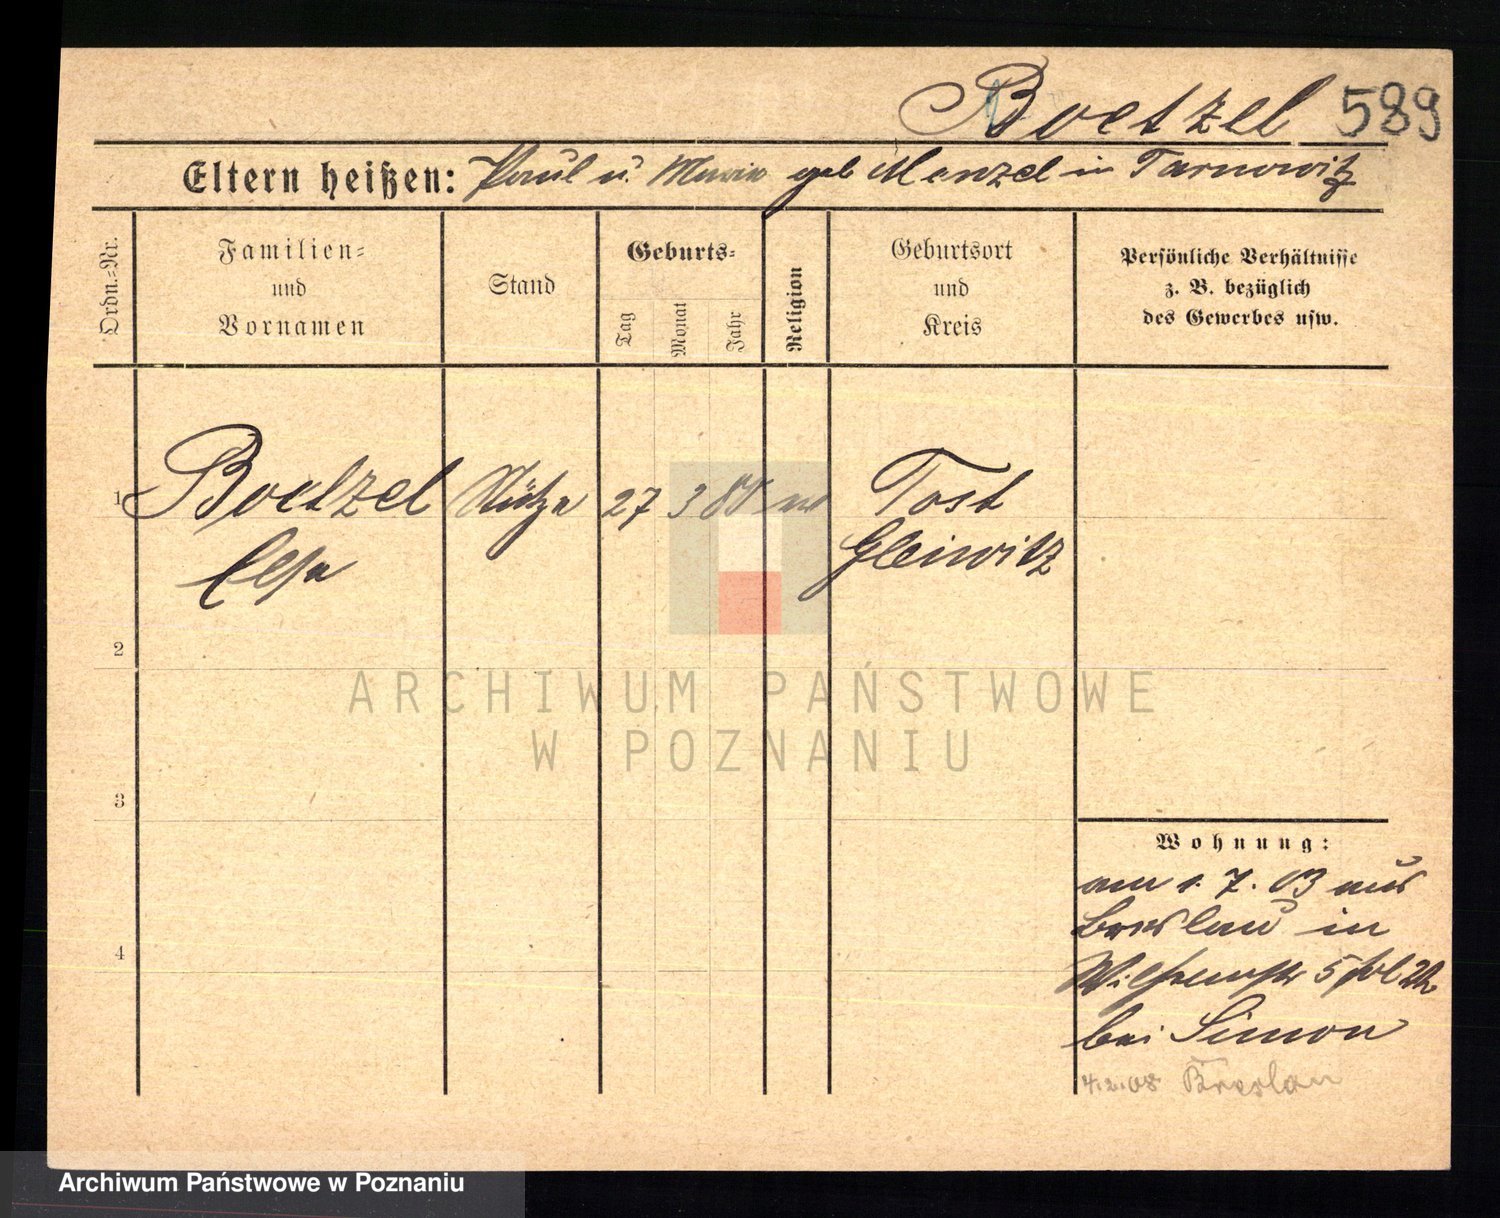 Boetzel 589
Eltern heißen: Paul u. Maria geb Menzel in Tarnowitz
Ordn.-Nr.
Familien-
und
Vornamen
Stand
Geburts-
Tag
Monat
Jahr
Religion
Geburtsort
und
Kreis
Persönliche Verhältnisse
z. B. bezüglich
des Gewerbes usw.
1 Boetzel Stütze 27 3 80 Tost
Elsa Gleiwitz
2
3
4
Wohnung:
am 1. 7. 03 aus
Breslau in
5
bei Simon
4.2.08 Breslau
ARCHIWUM PAŃSTWOWE
W POZNANIU
Archiwum Państwowe w Poznaniu